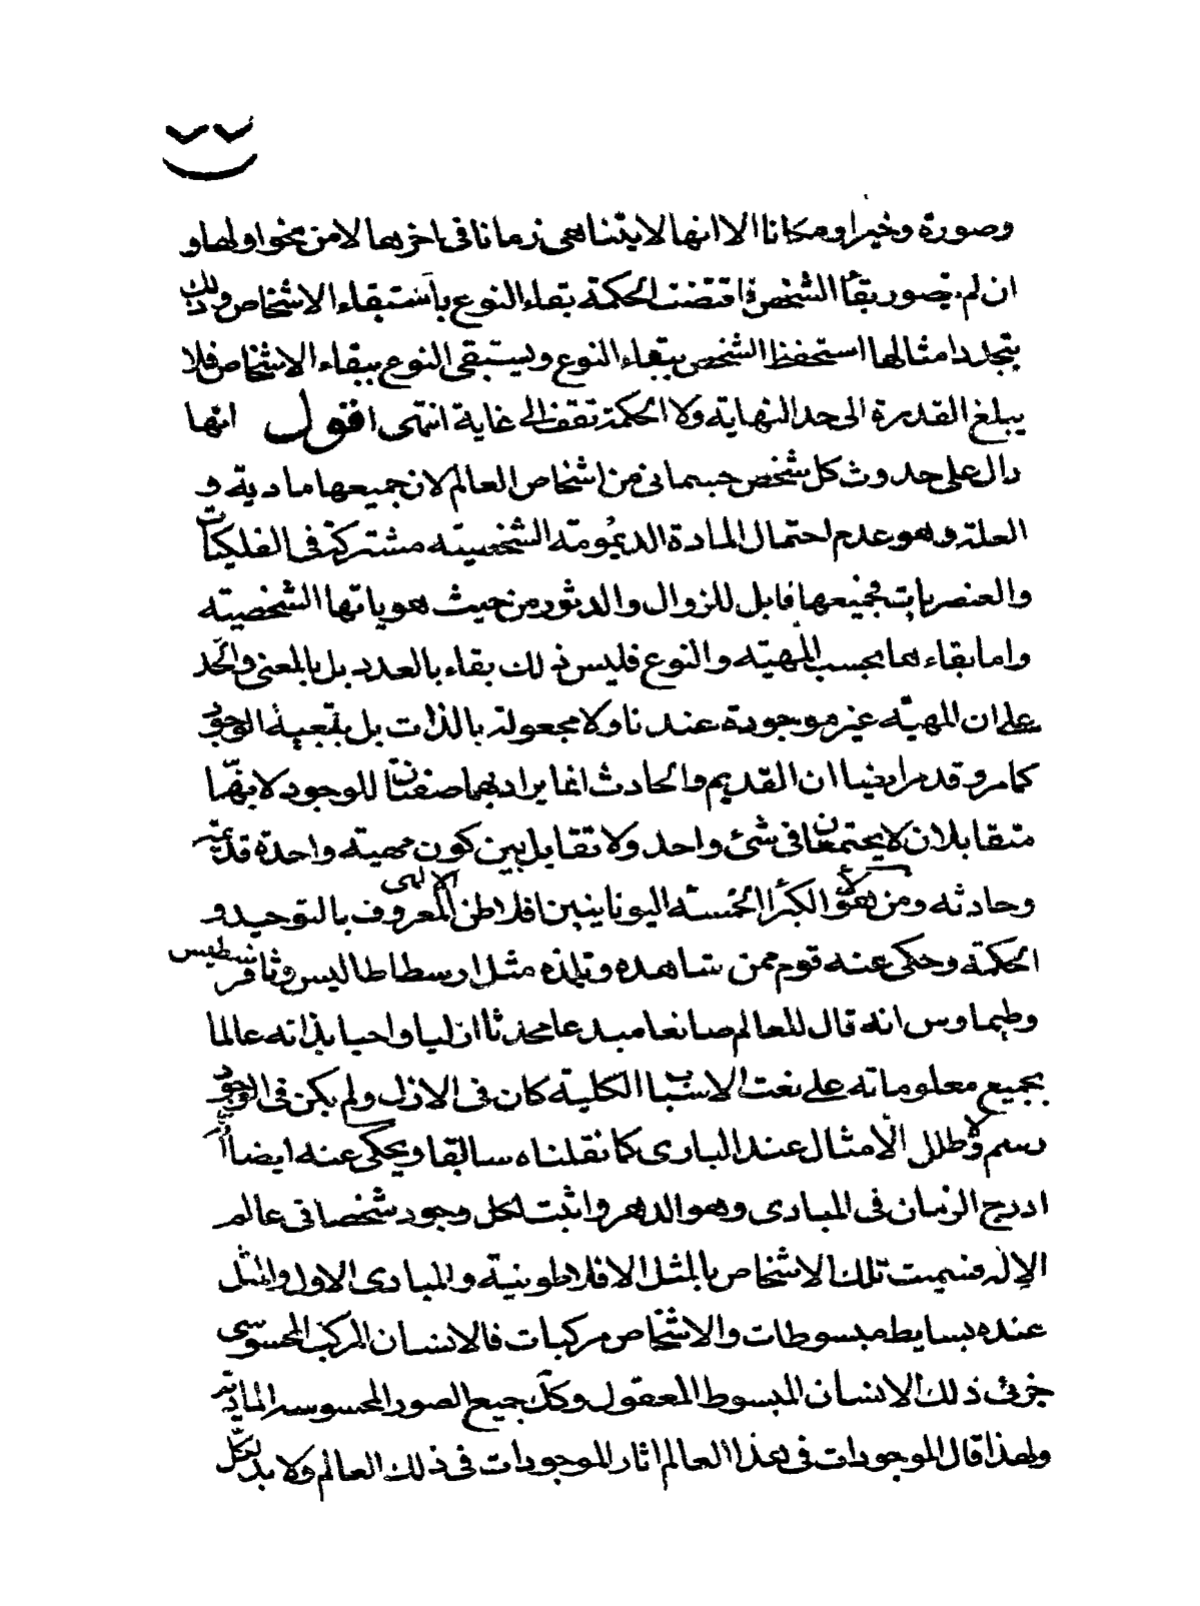 ٧٧
وصورة وخيرا ومكانا الا انها لا يتناهى زمانا فى اخرها لا من نحو اولها و
ان لم يتصور بقأ الشخص اقتضت الحكمة بقاء النوع باستبقاء الاشخاص وذلك
بتجدد امثالها استحفظ الشخص ببقاء النوع ويستبقى النوع ببقاء الاشخاص فلا
يبلغ القدرة الى حد النهاية ولا الحكمة تقف الى غاية انتهى اقول انها
دال على حدوث كل شخص جسمانى من اشخاص العالم لان جميعها مادية و
العلة وهو عدم احتمال المادة الديمومة الشخصيته مشتركة فى الفلكيات
والعنصريات فجميعها قابل للزوال والدثور من حيث هوياتها الشخصيته
واما بقاءها بحسب المهيته والنوع فليس ذلك بقاء بالعدد بل بالمعنى والحد
على ان المهيّه غير موجودة عندنا ولا مجعولة بالذات بل بتبعية الوجود
كما مر وقد مر ايضا ان القديم والحادث انما يراد بهما صفتان للوجود لانهّما
متقابلان لا يجتمعان فى شئ واحد ولا تقابل بين كون مهيته واحدة قديمته
وحادثه ومن هؤلاء الكبرأ الخمسته اليونانيين افلاطن الالهى المعروف بالتوحيد و
الحكمة وحكى عنه قوم ممن شاهده وتلمذه مثل ارسطاطاليس وثافرسطيس
وطيماوس انه قال للعالم صانعا مبدعا محدثا ازليا واحيا بذاته عالما
بجميع معلوماته على نعت الاسباب الكلية كان فى الازل ولم يكن فى الوجود
رسم ولا طلل الّا مثال عند البارى كما نقلناه سابقا ويحكى عنه ايضا انه
ادرج الزمان فى المبادى وهو الدهر واثبت لكل وجود شخصا فى عالم
الإله فسميت تلك الاشخاص بالمثل الافلاطونية والمبادى الاول والمثل
عنده بسايط مبسوطات والاشخاص مركبات فالانسان المركب المحسوسى
جزئ ذلك الانسان المبسوط المعقول وكك جميع الصور المحسوسه المادية
ولهذا قال الموجودات فى هذا العالم اثار الموجودات فى ذلك العالم ولا بد لكل